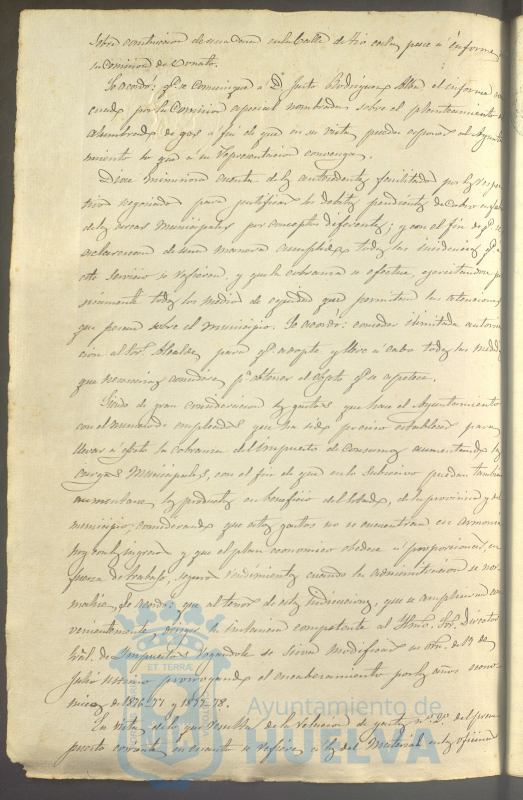 sobre construccion de una casa en la Calle de Rio cuba, pase á informe
la Comision de Ornato.
Se acordó: qe. se comunique á D. Justo Rodriguez Alba el informe
por la Comision especial nombrada sobre el planteamiento
alumbrado de gas á fin de que en su vista, pueda esponer al Ayunta
miento lo que á su representacion convenga.
Dióse minuciosa cuenta de los antecedentes facilitados por los respec
tivos negociados para justificar los debitos pendientes de cobro
de las arcas Municipales por conceptos diferentes; y con el fin de qe. se
esclarezcan de una manera cumplida todas las incidencias qe. á
este servicio se refieran, y que la cobranza se efectue, ejercitandose
todos los medios de equidad que permitan las atenciones
que pesan sobre el municipio. Se acordó: conceder ilimitada autoriza
cion al Sor. Alcalde, para qe. adopte y lleve á cabo todas las medidas
que necesarias considere pa. obtener el objeto qe. se apetece.
Siendo de gran consideracion los gastos que hace el Ayuntamiento
con el numero de empleados que ha sido preciso establecer para
llevar á efecto la cobranza del impuesto de Consumos aumentando las
cargas Municipales, con el fin de que en lo subcesivo puedan tambien
aumentarse los productos en beneficio del Estado, de la provincia y del
municipio, considerando que estos gastos no se encuentran en armonia
hoy con los ingresos y que el plan economico obedece á proporcionar, en
fuerza de trabajo, seguros rendimientos cuando la administracion se nor
malice, Se acordó: que al tenor de estas indicaciones, que se ampliaran con
venientemente dirija la instancia competente al Ilmo. Sor. Director
Gral. de Impuestos rogandole se sirva modificar su orn. de 19 de
Julio ultimo prorrogando el encabezamiento por los años econo
micos de 1876-77 y 1877-78.
En vista de lo que resulta de la relacion de gastos no. 2o. del presu
puesto corriente en cuanto se refiere á los del Material en las oficinas
ET TERRÆ
Ayuntamiento de
HUELVA